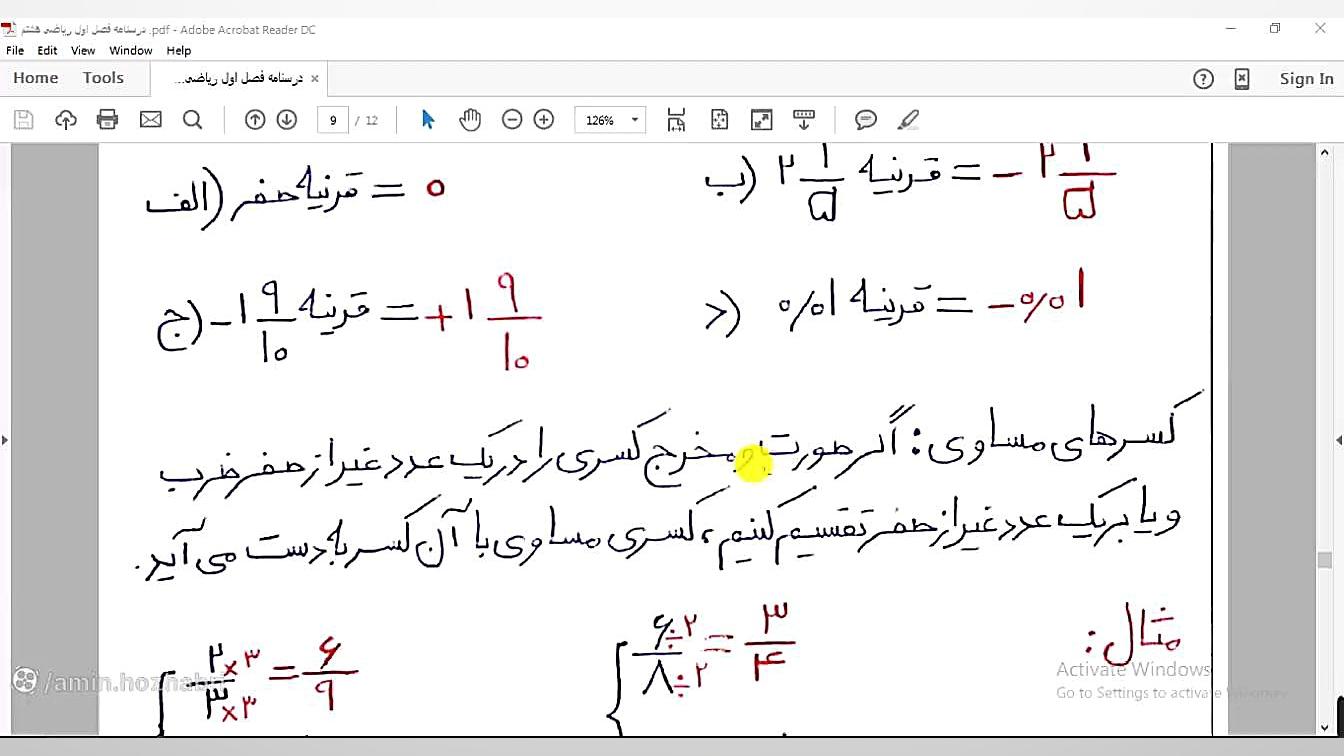 درسنامه فصل اول ریاضی هشتم .pdf - Adobe Acrobat Reader DC
File Edit View Window Help
Home Tools درسنامه فصل اول ریاضی... × Sign In
9 / 12 126%
الف) قرنیه صفر = ۰
ب) ۲ ۱/۵ قرنیه = - ۲ ۱/۵
ج) -۱ ۹/۱۰ قرنیه = +۱ ۹/۱۰
د) ۰/۰۱ قرنیه = -۰/۰۱
کسرهای مساوی: اگر صورت و مخرج کسری را در یک عدد غیر از صفر ضرب
و یا بر یک عدد غیر از صفر تقسیم کنیم، کسری مساوی با آن کسر به دست می آید.
مثال:
۶÷۲ / ۸÷۲ = ۳/۴
۲×۳ / ۳×۳ = ۶/۹
Activate Windows
Go to Settings to activate Windows.
/amin.hoznabri